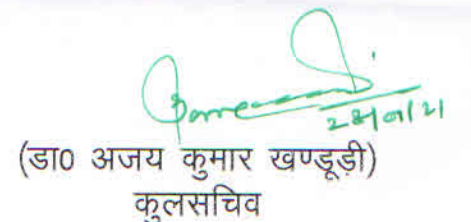 (डा0 अजय कुमार खण्डूड़ी)
कुलसचिव